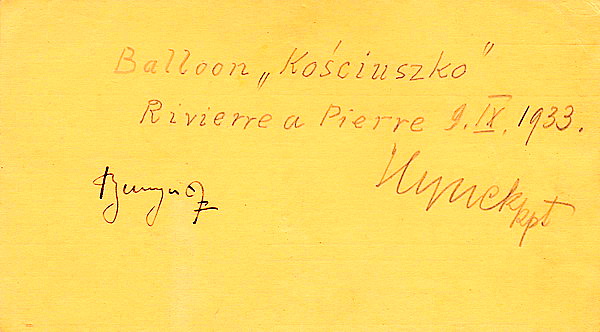 Balloon „Kościuszko”
Rivierre a Pierre 9. IX. 1933.
Hynek kpt